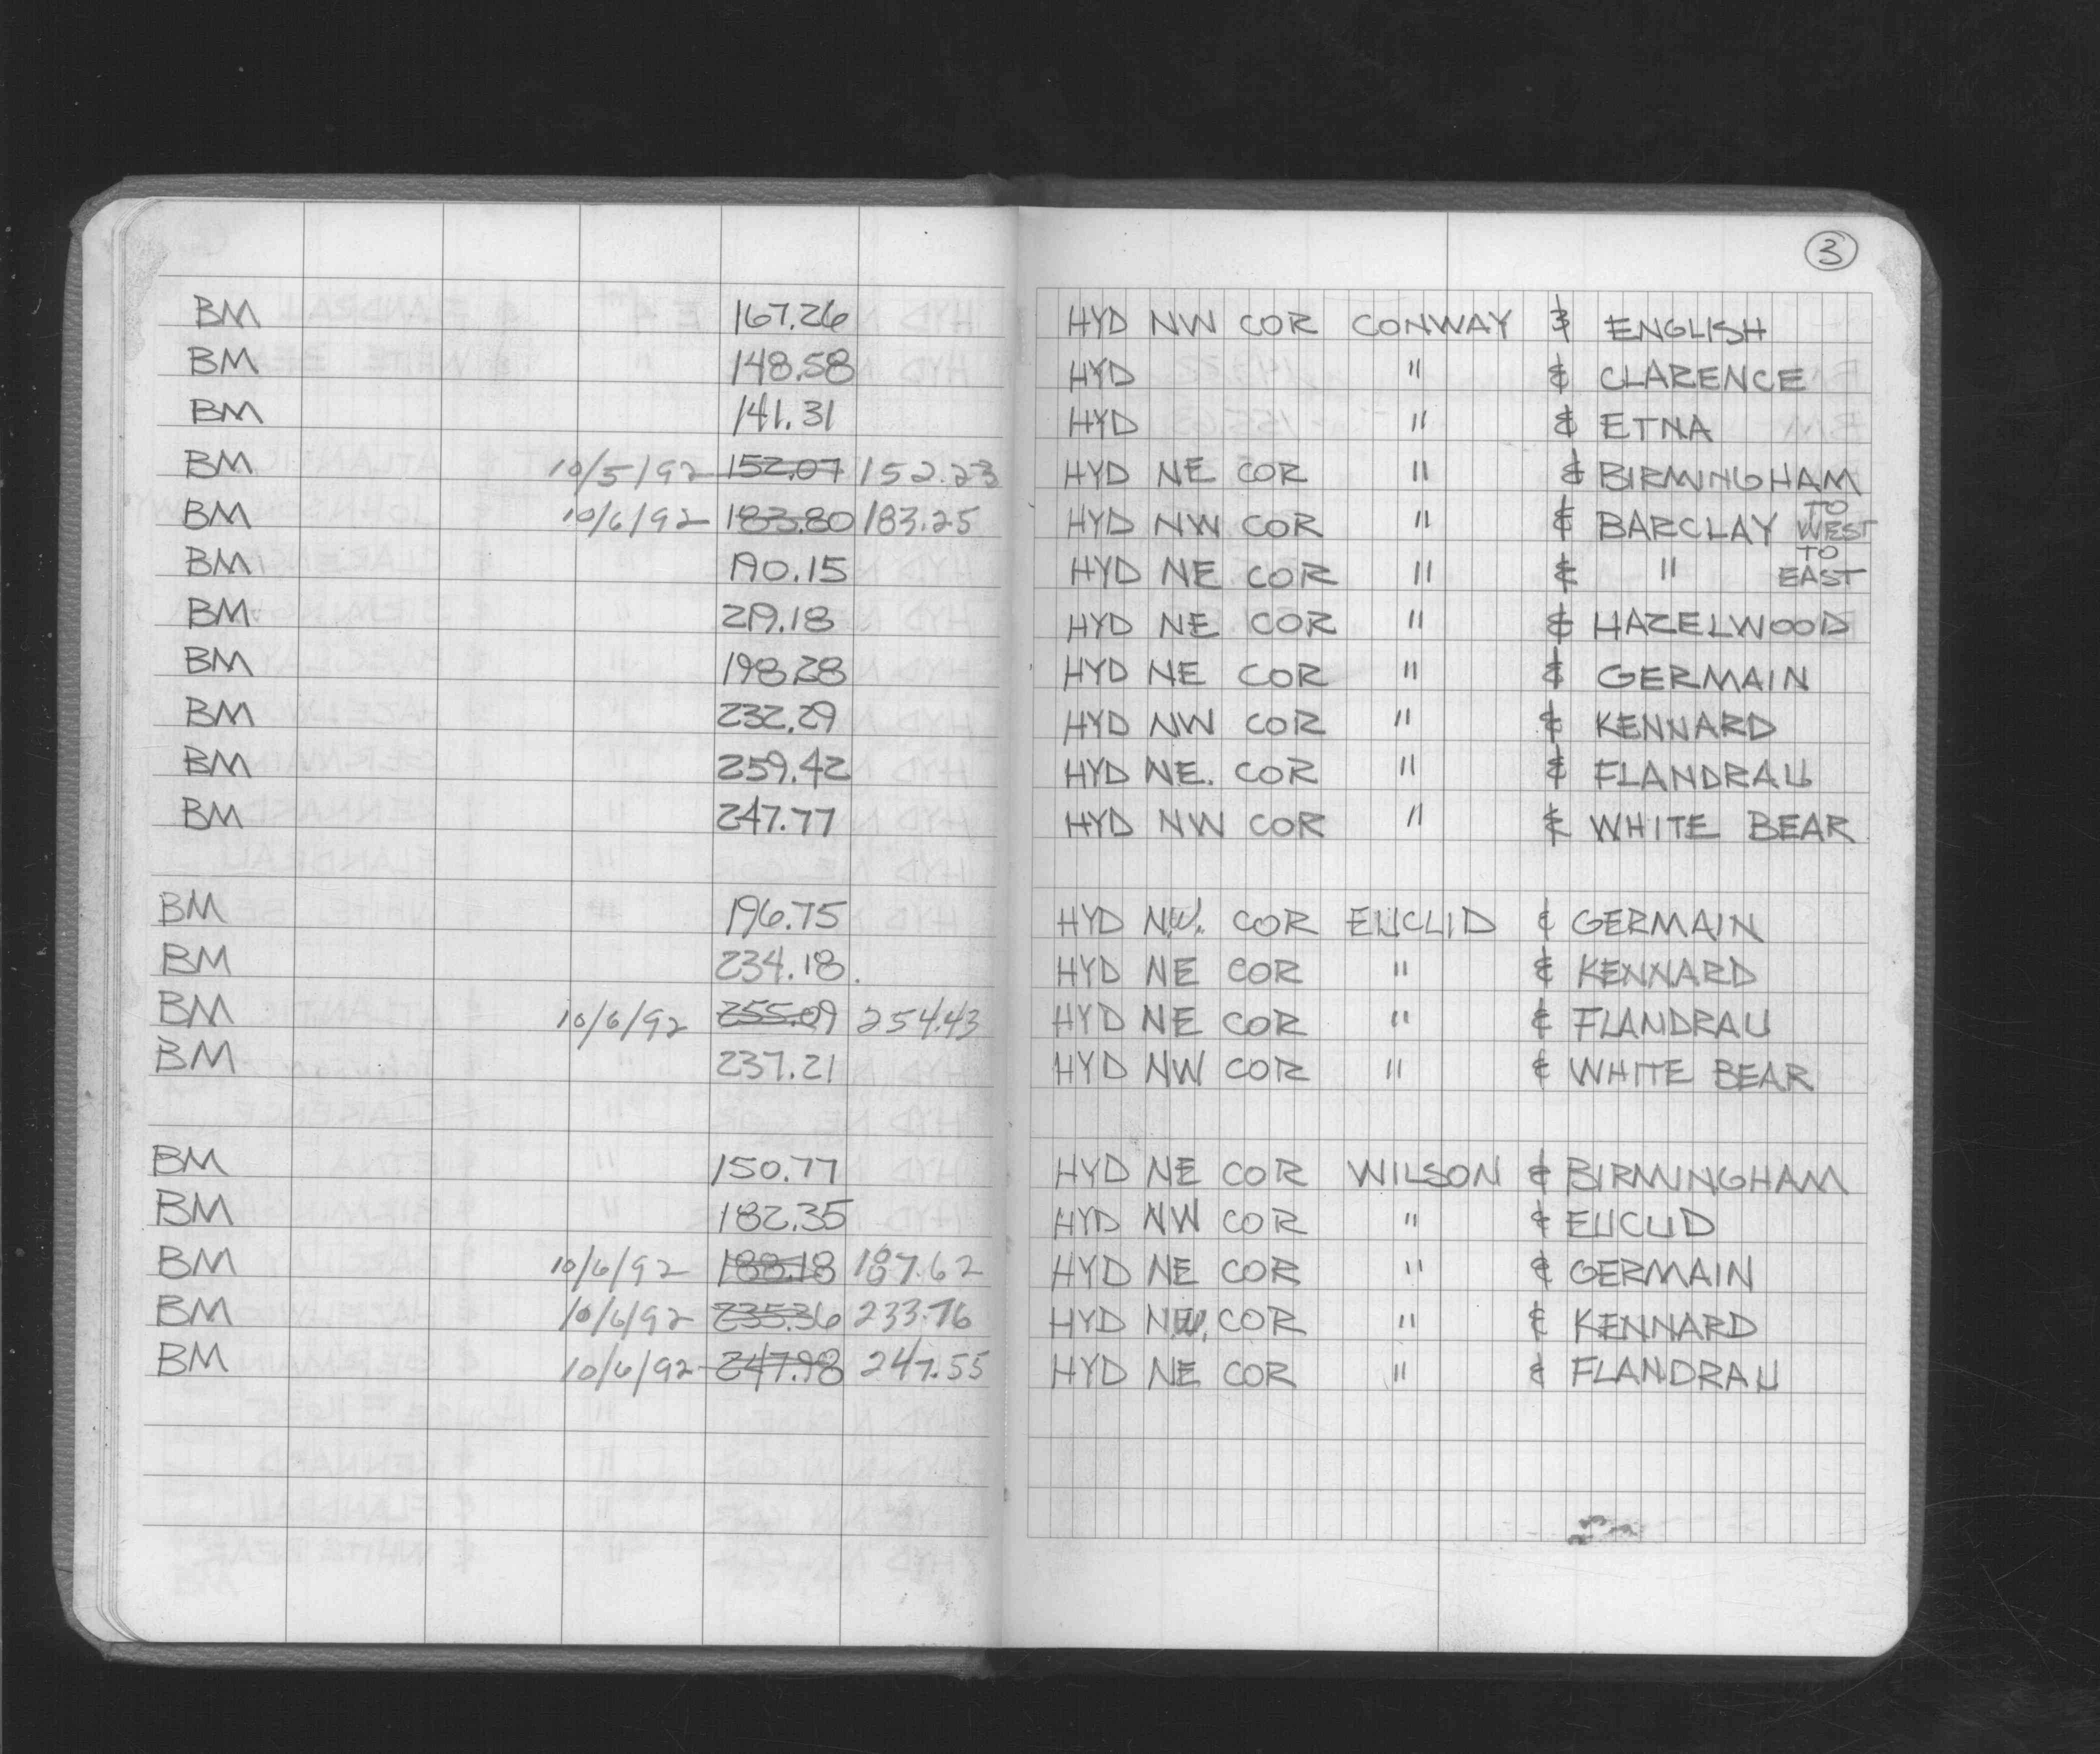 3
BM 167.26 HYD NW COR CONWAY & ENGLISH
BM 148.58 HYD " & CLARENCE
BM 141.31 HYD " & ETNA
BM 10/5/92 152.07 152.23 HYD NE COR " & BIRMINGHAM
BM 10/6/92 183.80 183.25 HYD NW COR " & BARCLAY TO WEST
BM 190.15 HYD NE COR " & " TO EAST
BM 219.18 HYD NE COR " & HAZELWOOD
BM 198.28 HYD NE COR " & GERMAIN
BM 232.29 HYD NW COR " & KENNARD
BM 259.42 HYD NE. COR " & FLANDRAU
BM 247.77 HYD NW COR " & WHITE BEAR
BM 196.75 HYD N.W. COR EUCLID & GERMAIN
BM 234.18. HYD NE COR " & KENNARD
BM 10/6/92 255.09 254.43 HYD NE COR " & FLANDRAU
BM 237.21 HYD NW COR " & WHITE BEAR
BM 150.77 HYD NE COR WILSON & BIRMINGHAM
BM 182.35 HYD NW COR " & EUCLID
BM 10/6/92 188.18 187.62 HYD NE COR " & GERMAIN
BM 10/6/92 235.36 233.76 HYD NW. COR " & KENNARD
BM 10/6/92 247.98 247.55 HYD NE COR " & FLANDRAU